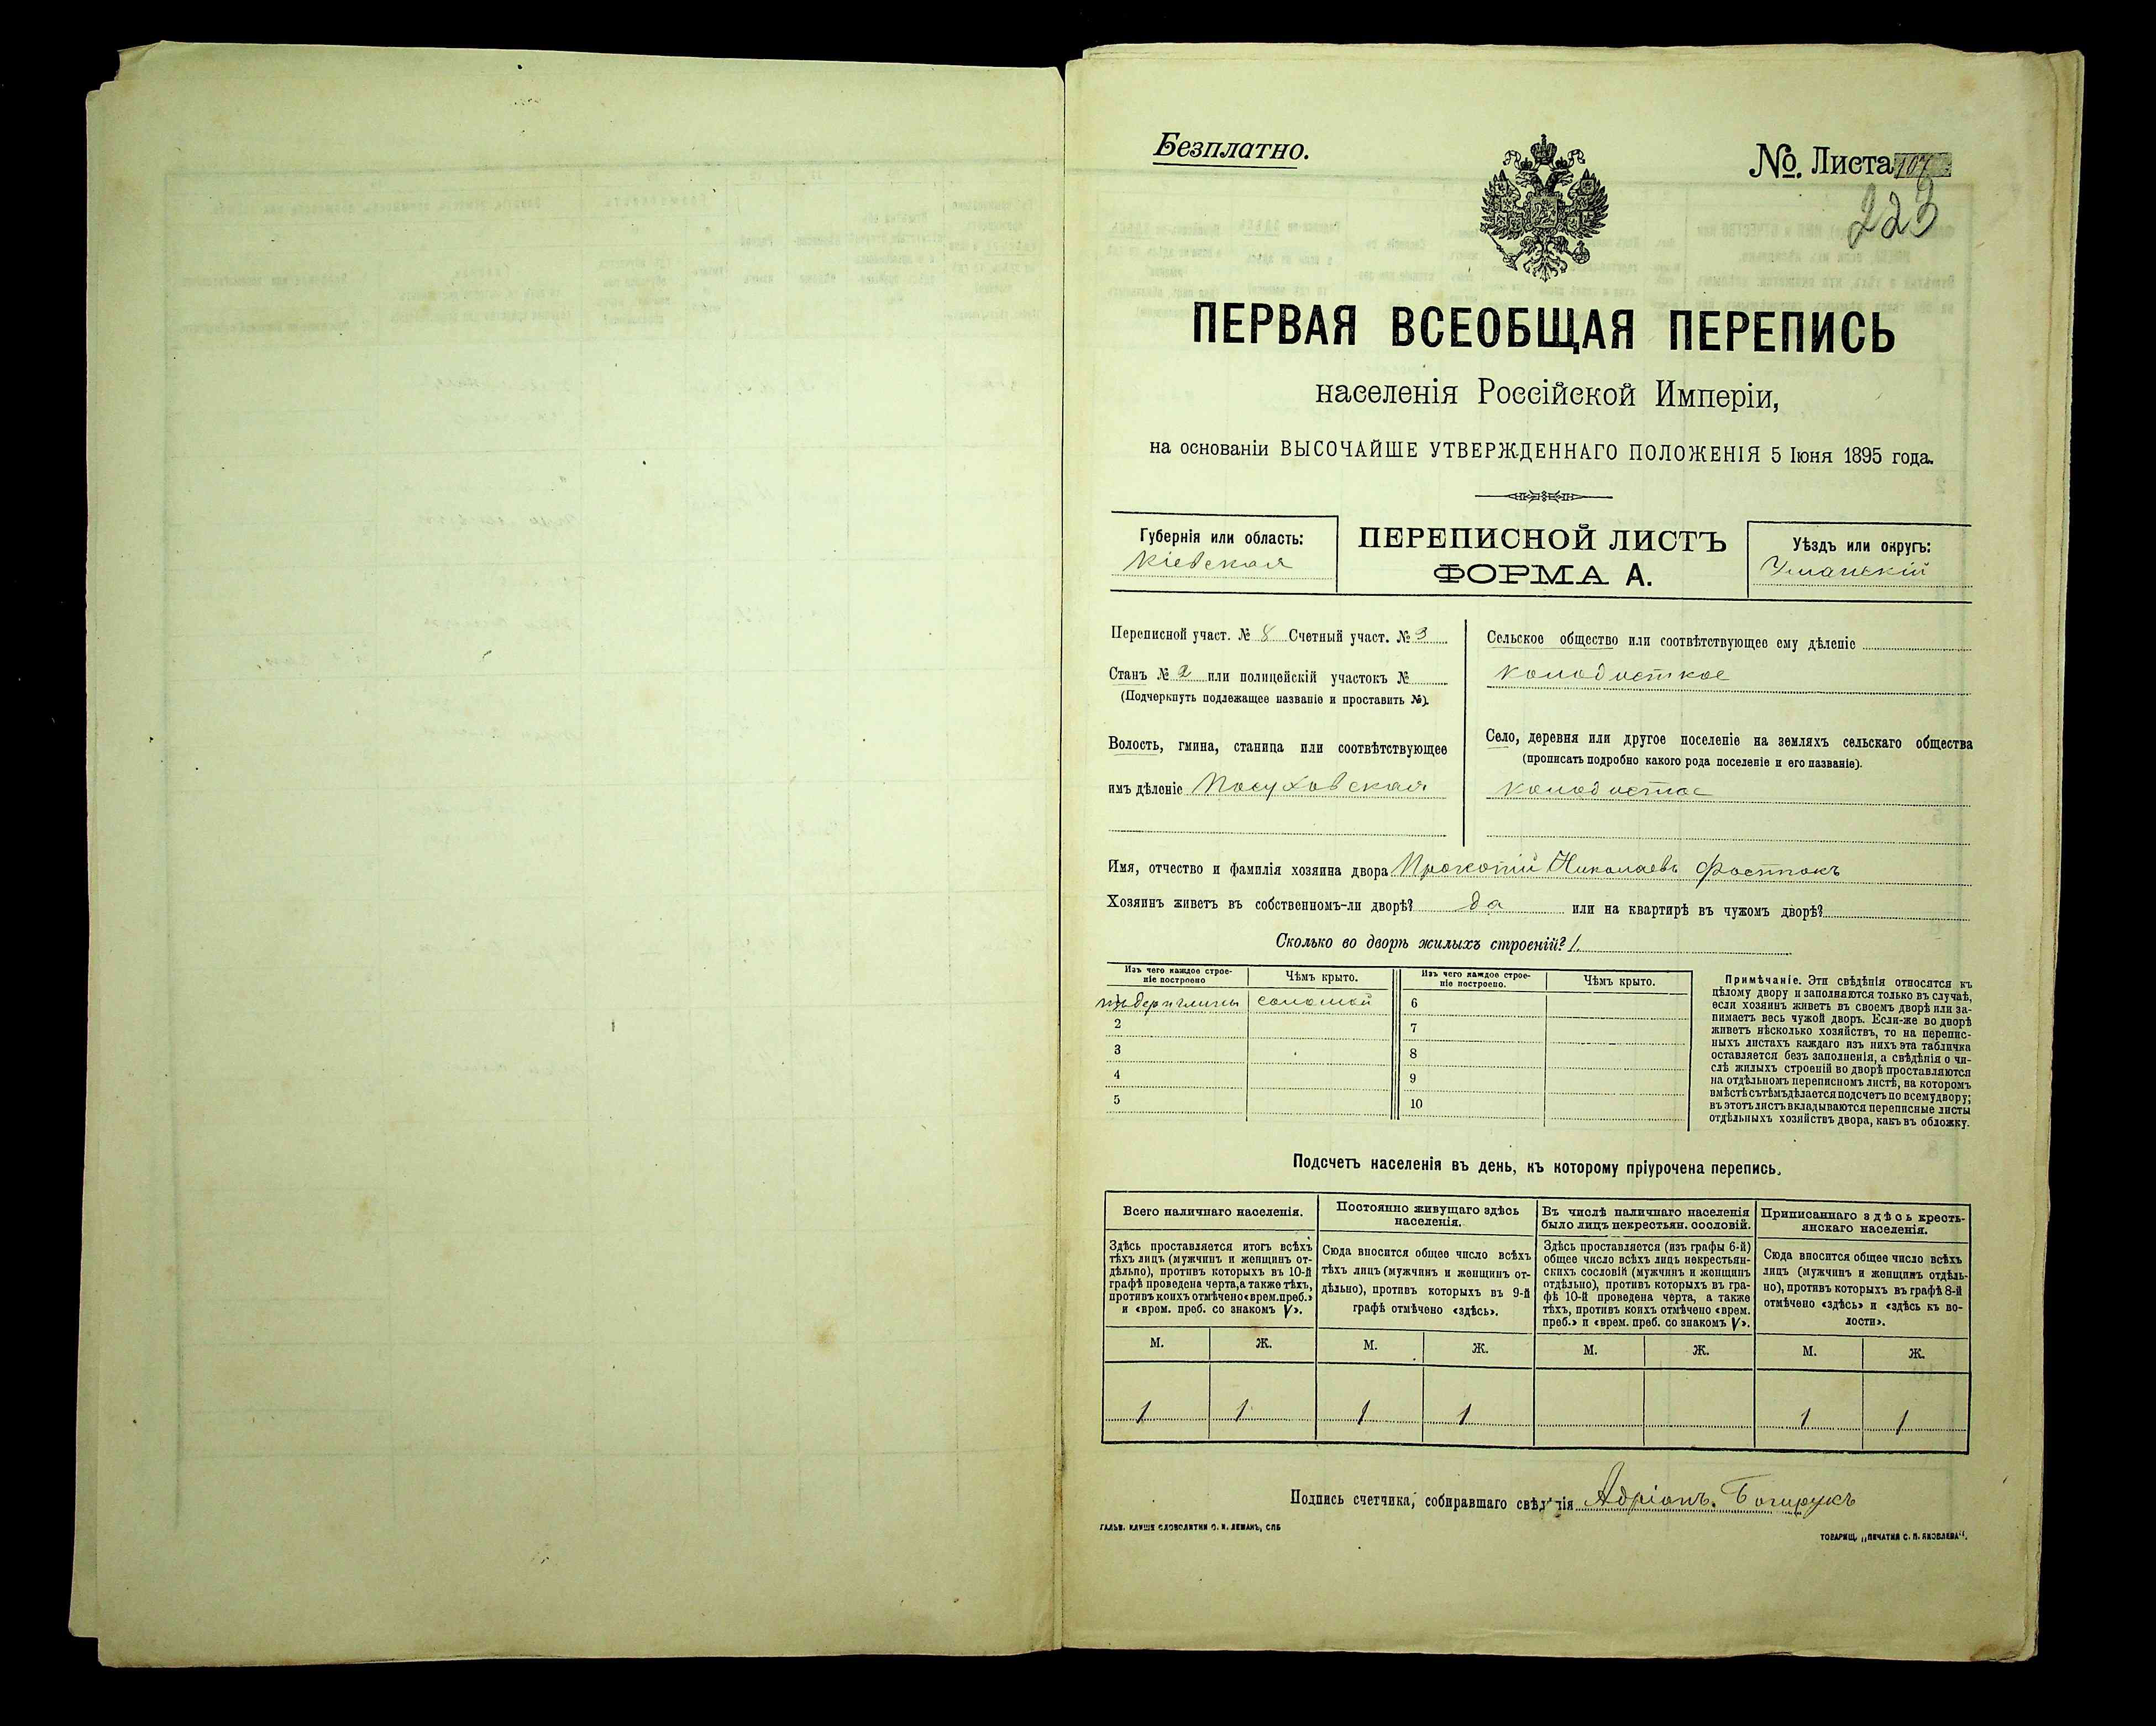 Безплатно.
№. Листа 107
223
ПЕРВАЯ ВСЕОБЩАЯ ПЕРЕПИСЬ
населенія Россійской Имперіи,
на основаніи ВЫСОЧАЙШЕ УТВЕРЖДЕННАГО ПОЛОЖЕНІЯ 5 Іюня 1895 года.
Губернія или область:
Кіевская
ПЕРЕПИСНОЙ ЛИСТЪ
ФОРМА А.
Уѣздъ или округъ:
Уманскій
Переписной участ. № 8 Счетный участ. № 3
Станъ № 2 или полицейскій участокъ №
(Подчеркнуть подлежащее названіе и проставить №).
Волость, гмина, станица или соотвѣтствующее
имъ дѣленіе Посуховская
Сельское общество или соотвѣтствующее ему дѣленіе
Колодисткое
Село, деревня или другое поселеніе на земляхъ сельскаго общества
(прописать подробно какого рода поселеніе и его названіе).
Колодистое
Имя, отчество и фамилія хозяина двора Прокопій Николаевъ
Хозяинъ живетъ въ собственномъ-ли дворѣ? да или на квартирѣ въ чужомъ дворѣ?
Сколько во дворѣ жилыхъ строеній? 1.
Изъ чего каждое строе-
ніе построено
Чѣмъ крыто.
Изъ чего каждое строе-
ніе построено.
Чѣмъ крыто.
глины соломой 6
2 7
3 8
4 9
5 10
Примѣчаніе. Эти свѣдѣнія относятся къ
цѣлому двору и заполняются только въ случаѣ,
если хозяинъ живетъ въ своемъ дворѣ или за-
нимаетъ весь чужой дворъ. Если-же во дворѣ
живетъ нѣсколько хозяйствъ, то на перепис-
ныхъ листахъ каждаго изъ нихъ эта табличка
оставляется безъ заполненія, а свѣдѣнія о чи-
слѣ жилыхъ строеній во дворѣ проставляются
на отдѣльномъ переписномъ листѣ, на которомъ
вмѣстѣ съ тѣмъ дѣлается подсчетъ по всему двору;
въ этотъ листъ вкладываются переписные листы
отдѣльныхъ хозяйствъ двора, какъ въ обложку.
Подсчетъ населенія въ день, къ которому пріурочена перепись.
Всего наличнаго населенія.
Здѣсь проставляется итогъ всѣхъ
тѣхъ лицъ (мужчинъ и женщинъ от-
дѣльно), противъ которыхъ въ 10-й
графѣ проведена черта, а также тѣхъ,
противъ коихъ отмѣчено «врем. преб.»
и «врем. преб. со знакомъ V».
Постоянно живущаго здѣсь
населенія.
Сюда вносится общее число всѣхъ
тѣхъ лицъ (мужчинъ и женщинъ от-
дѣльно), противъ которыхъ въ 9-й
графѣ отмѣчено «здѣсь».
Въ числѣ наличнаго населенія
было лицъ некрестьян. сословій.
Здѣсь проставляется (изъ графы 6-й)
общее число всѣхъ лицъ некрестьян-
скихъ сословій (мужчинъ и женщинъ
отдѣльно), противъ которыхъ въ гра-
фѣ 10-й проведена черта, а также
тѣхъ, противъ коихъ отмѣчено «врем.
преб.» и «врем. преб. со знакомъ V».
Приписаннаго здѣсь кресть-
янскаго населенія.
Сюда вносится общее число всѣхъ
лицъ (мужчинъ и женщинъ отдѣль-
но), противъ которыхъ въ графѣ 8-й
отмѣчено «здѣсь» и «здѣсь къ во-
лости».
М. Ж. М. Ж. М. Ж. М. Ж.
1 1 1 1 1 1
Подпись счетчика, собиравшаго свѣдѣнія Адріанъ
ГАЛЬВ. КЛИШЕ СЛОВОЛИТНИ О. И. ЛЕМАНЪ, СПБ
ТОВАРИЩ. „ПЕЧАТНЯ С. П. ЯКОВЛЕВА".